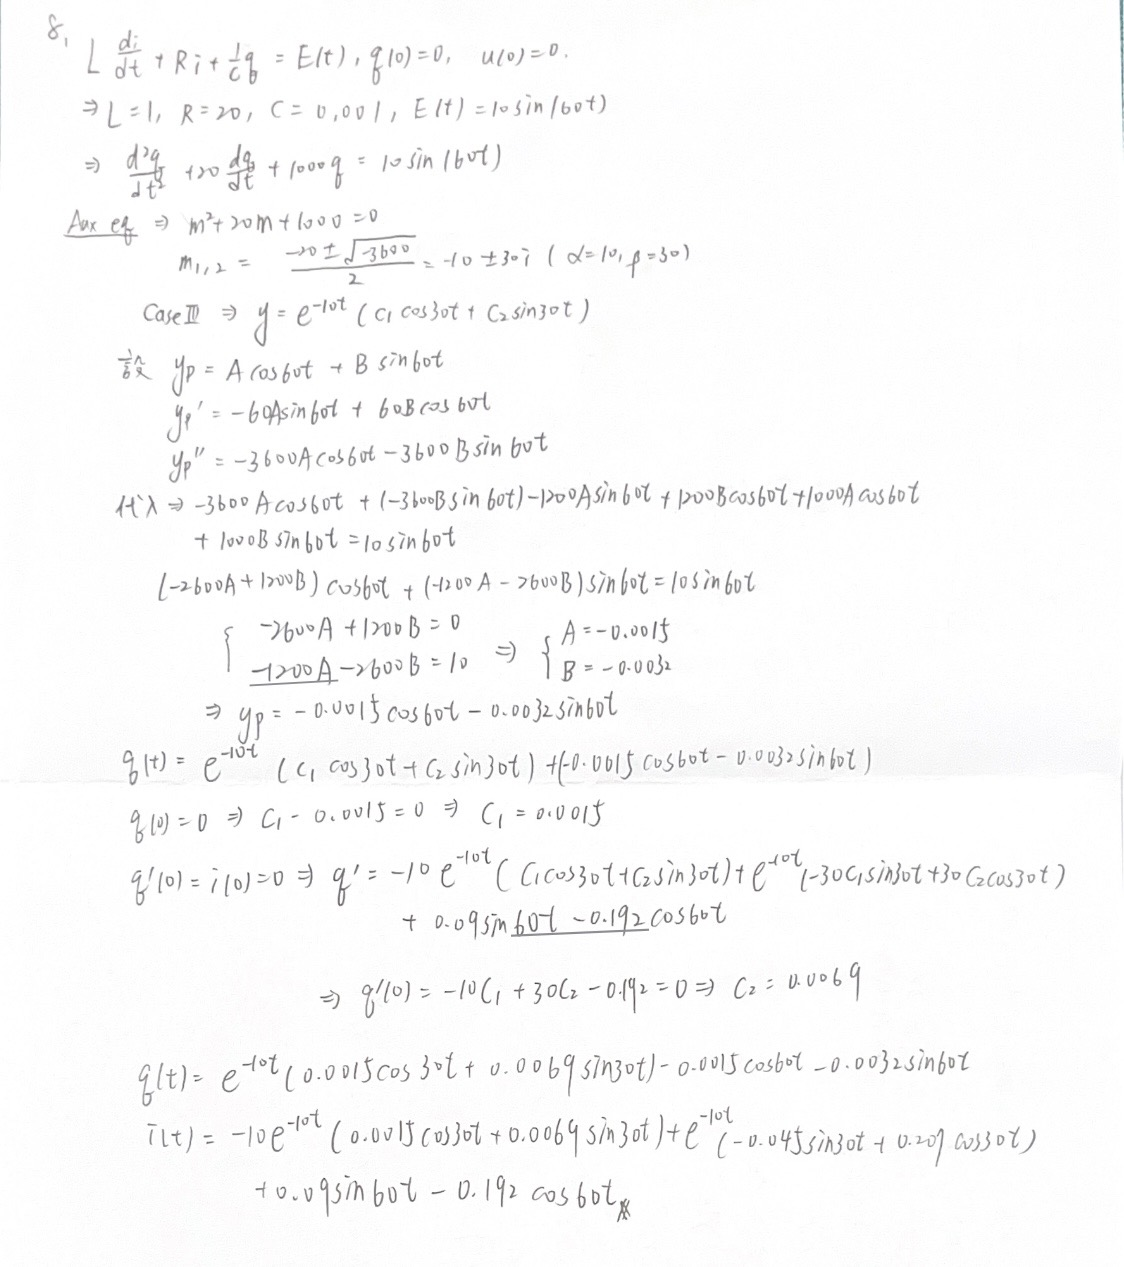 8,
L di/dt + Ri + 1/C q = E(t), q(0)=0, u(0)=0.
⇒ L=1, R=20, C=0,001, E(t)=10sin(60t)
⇒ d²q/dt² +20 dq/dt + 1000q = 10 sin(60t)
Aux eq ⇒ m²+20m+1000=0
m₁,₂ = (-20±√-3600)/2 = -10±30i (α=10, β=30)
Case III ⇒ y = e^-10t (C₁ cos30t + C₂ sin30t)
設 yp = A cos60t + B sin60t
yp' = -60Asin60t + 60Bcos60t
yp" = -3600Acos60t - 3600Bsin60t
代入 ⇒ -3600Acos60t + (-3600Bsin60t)-1200Asin60t + 1200Bcos60t+1000Acos60t
+ 1000B sin60t = 10sin60t
(-2600A+1200B) cos60t + (-1200A - 2600B)sin60t = 10sin60t
{ -2600A + 1200B = 0 ⇒ { A = -0.0015
-1200A-2600B = 10 B = -0.0032
⇒ yp = -0.0015cos60t - 0.0032sin60t
q(t) = e^-10t (C₁ cos30t + C₂ sin30t) +(-0.0015cos60t - 0.0032sin60t)
q(0)=0 ⇒ C₁ - 0.0015=0 ⇒ C₁ = 0.0015
q'(0)=i(0)=0 ⇒ q' = -10e^-10t (C₁cos30t+C₂sin30t)+e^-10t (-30C₁sin30t+30C₂cos30t)
+ 0.09sin60t - 0.192cos60t
⇒ q'(0) = -10C₁ + 30C₂ - 0.192 = 0 ⇒ C₂ = 0.0069
q(t) = e^-10t (0.0015cos30t + 0.0069sin30t) - 0.0015cos60t - 0.0032sin60t
i(t) = -10e^-10t (0.0015cos30t + 0.0069sin30t)+e^-10t (-0.045sin30t + 0.207cos30t)
+0.09sin60t - 0.192cos60t